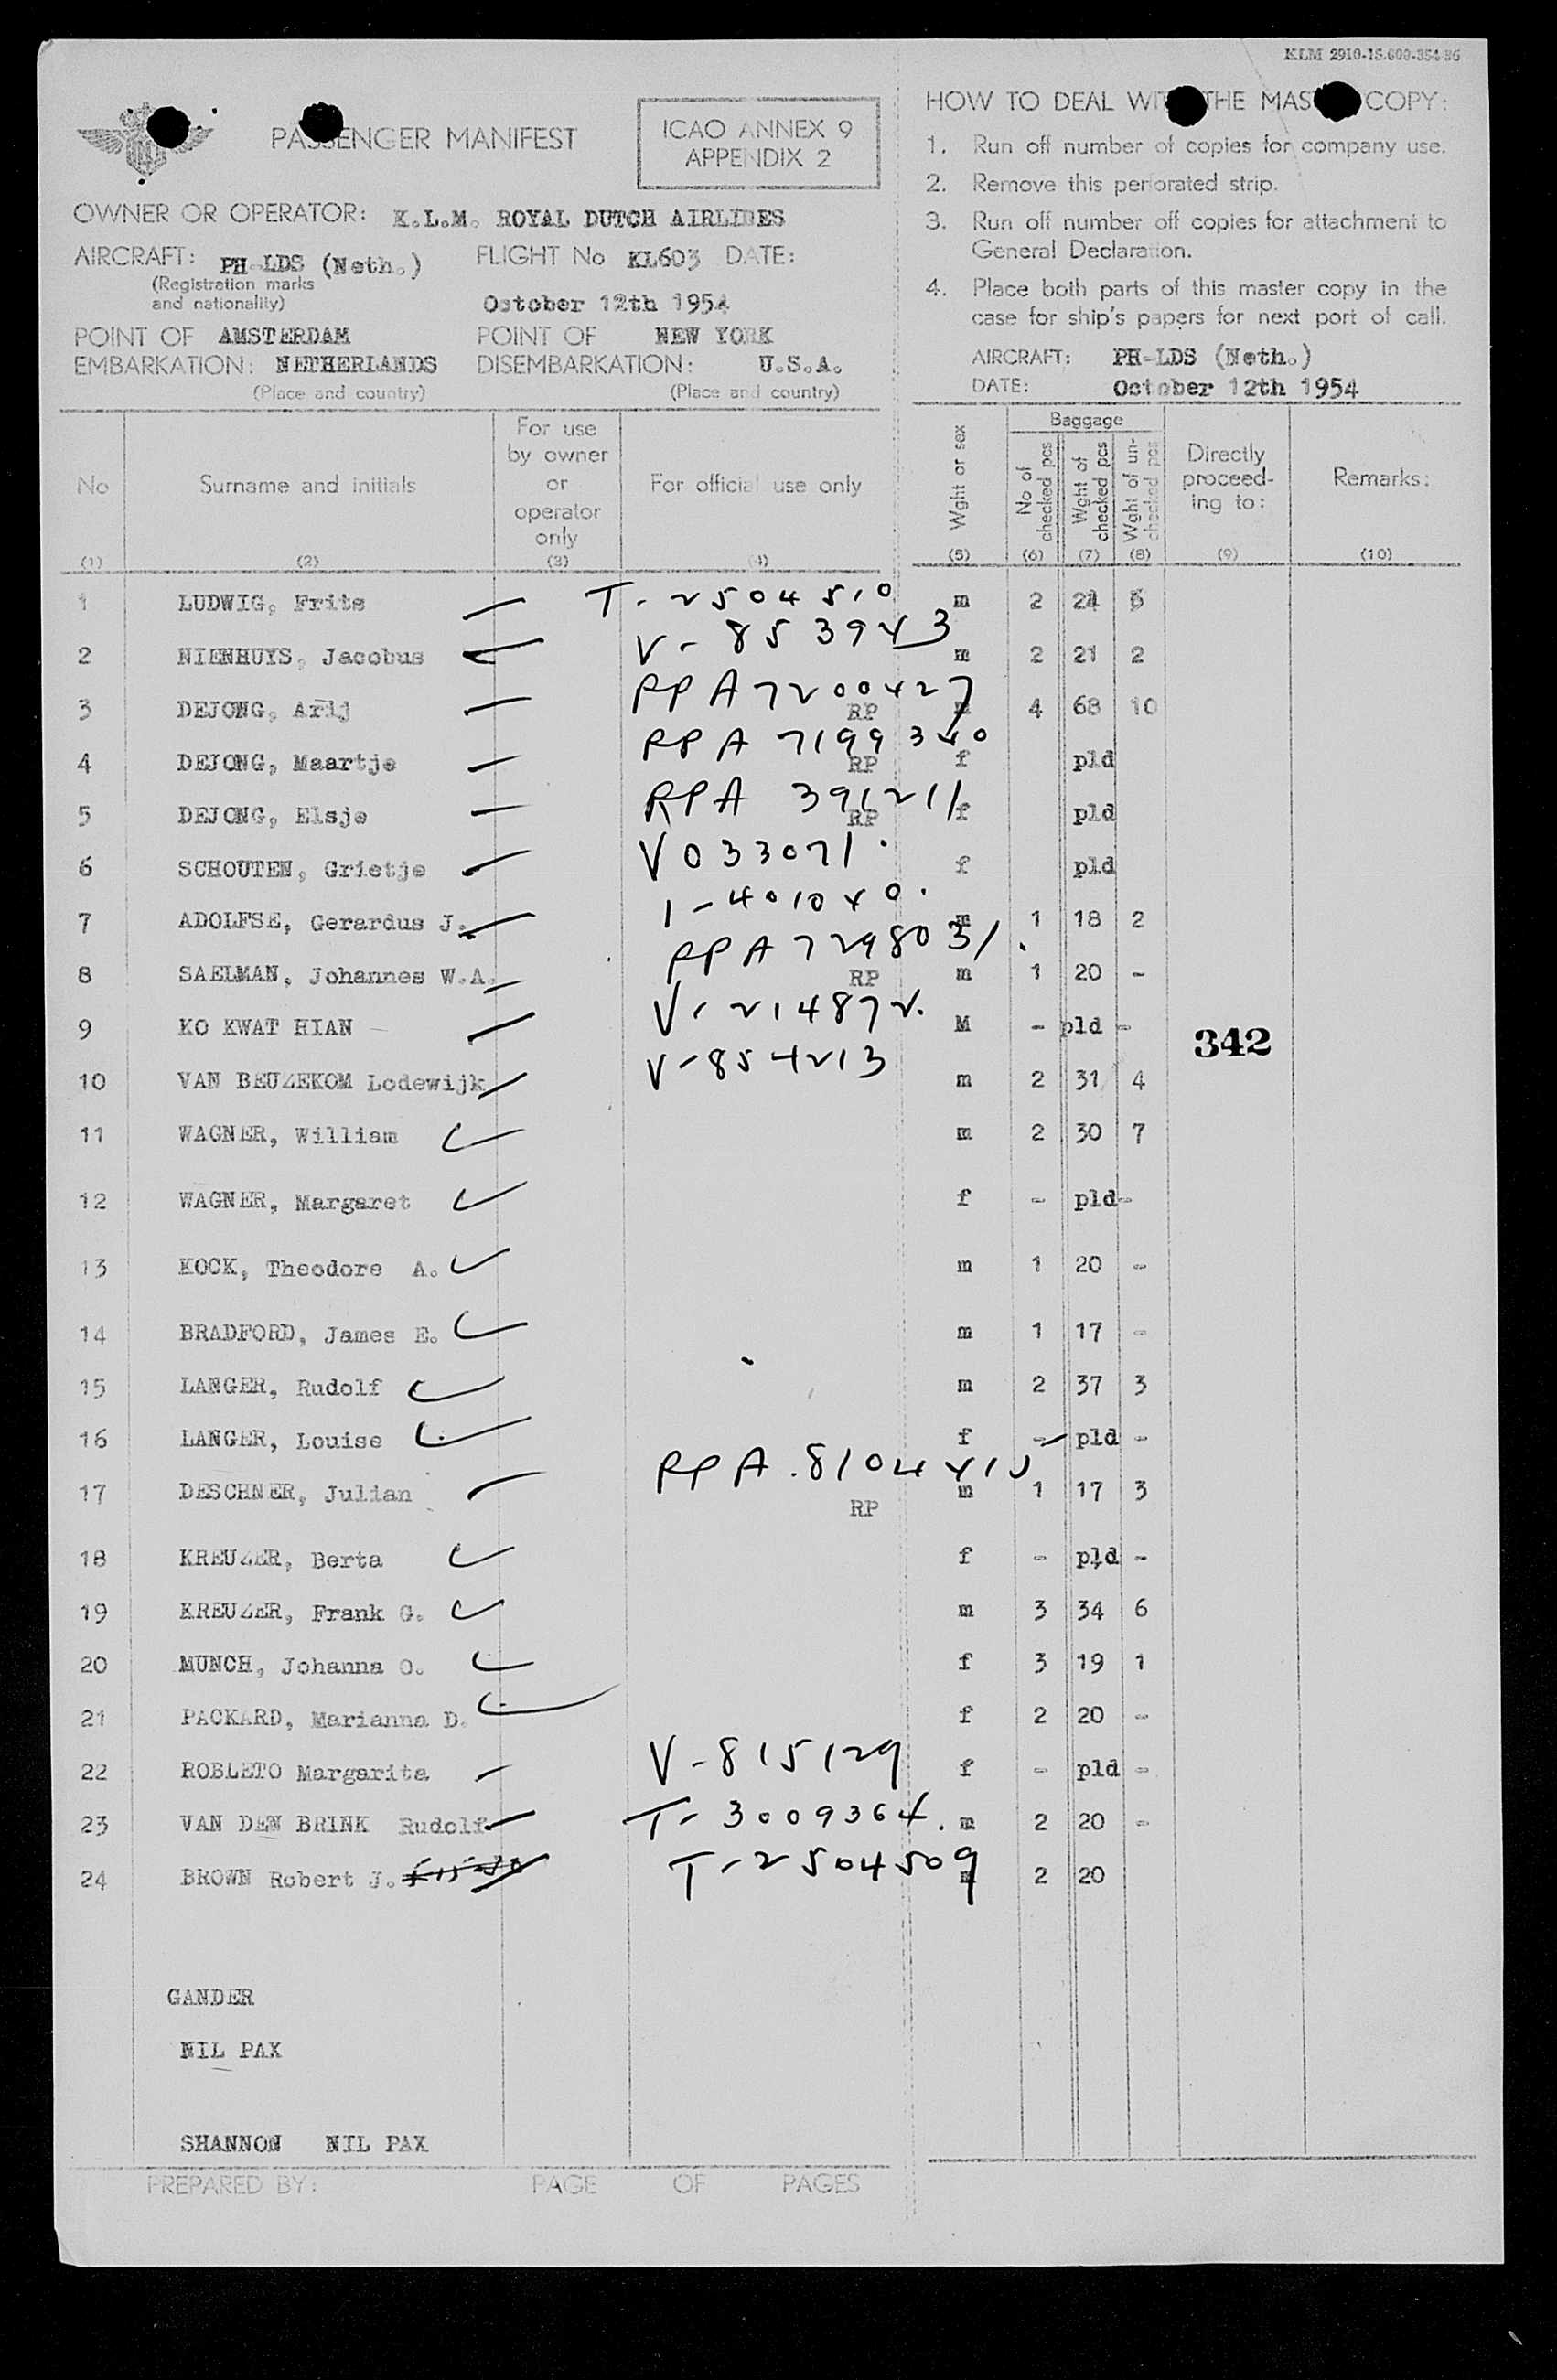 KLM 2910-15.000-354-86
PASSENGER MANIFEST
ICAO ANNEX 9
APPENDIX 2
OWNER OR OPERATOR: K.L.M. ROYAL DUTCH AIRLINES
AIRCRAFT: PH-LDS (Neth.) FLIGHT No KL603 DATE:
(Registration marks
and nationality) October 12th 1954
POINT OF AMSTERDAM POINT OF NEW YORK
EMBARKATION: NETHERLANDS DISEMBARKATION: U.S.A.
(Place and country) (Place and country)
HOW TO DEAL WITH THE MASTER COPY:
1. Run off number of copies for company use.
2. Remove this perforated strip.
3. Run off number off copies for attachment to
General Declaration.
4. Place both parts of this master copy in the
case for ship's papers for next port of call.
AIRCRAFT: PH-LDS (Neth.)
DATE: October 12th 1954
No (1)
Surname and initials (2)
For use
by owner
or
operator
only
(3)
For official use only (4)
Wght or sex (5)
Baggage
No of checked pcs (6)
Wght of checked pcs (7)
Wght of un-checked pcs (8)
Directly
proceed-
ing to:
(9)
Remarks: (10)
1 LUDWIG, Frits T-2504510 m 2 24 5
2 NIENHUYS, Jacobus V-853943 m 2 21 2
3 DEJONG, Arij RPA7200427 RP m 4 68 10
4 DEJONG, Maartje RPA 7199340 RP f pld
5 DEJONG, Elsje RPA 391211 RP f pld
6 SCHOUTEN, Grietje V033071 f pld
7 ADOLFSE, Gerardus J. 1-401040 m 1 18 2
8 SAELMAN, Johannes W.A. RPA7298031 RP m 1 20 -
9 KO KWAT HIAN V-214872 M - pld -
342
10 VAN BEUZEKOM Lodewijk V-854213 m 2 31 4
11 WAGNER, William m 2 30 7
12 WAGNER, Margaret f - pld -
13 KOCK, Theodore A. m 1 20 -
14 BRADFORD, James E. m 1 17 -
15 LANGER, Rudolf m 2 37 3
16 LANGER, Louise f - pld -
17 DESCHNER, Julian RPA.8104410 RP m 1 17 3
18 KREUZER, Berta f - pld -
19 KREUZER, Frank G. m 3 34 6
20 MUNCH, Johanna O. f 3 19 1
21 PACKARD, Marianna D. f 2 20 -
22 ROBLETO Margarita V-815129 f - pld -
23 VAN DEN BRINK Rudolf T-3009364. m 2 20 -
24 BROWN Robert J. T-2504509 m 2 20
GANDER
NIL PAX
SHANNON NIL PAX
PREPARED BY: PAGE OF PAGES